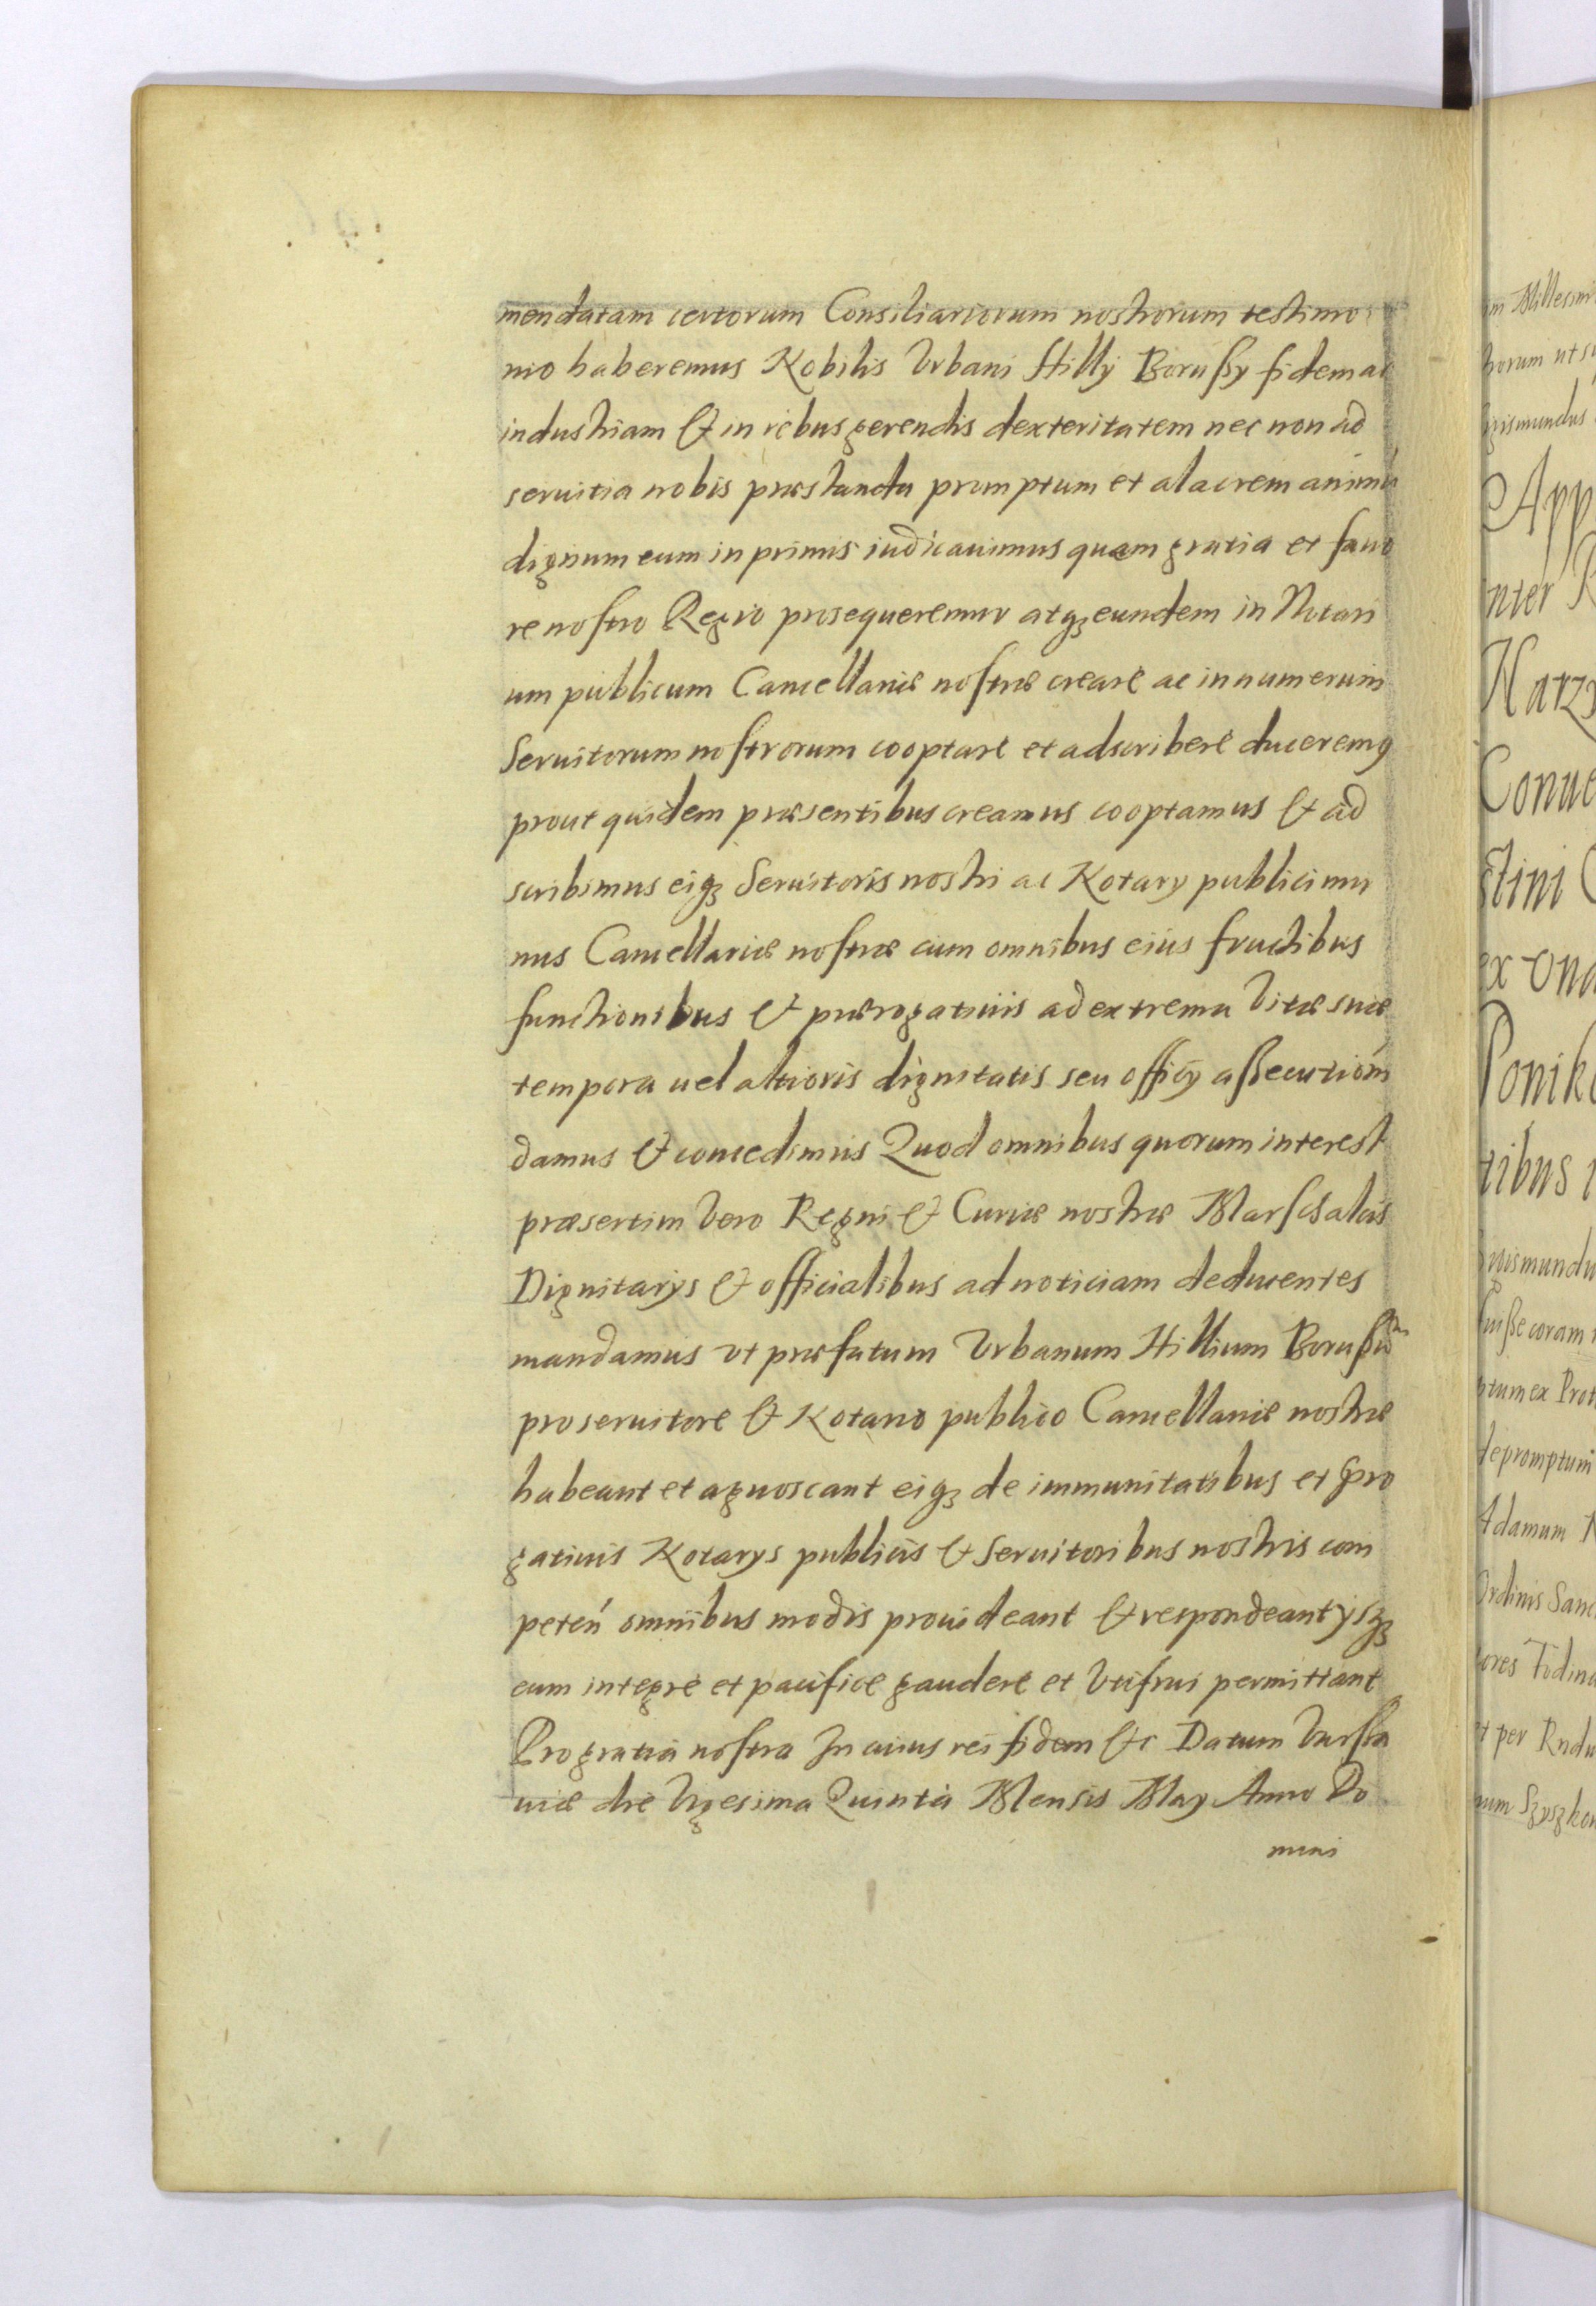 mendatam certorum Consiliariorum nostrorum testimo
nio haberemus Nobilis Vrbani Hilly Borußy fidem ac
industriam & in rebus gerendis dexteritatem nec non ad
seruitia nobis præstanda promptum et alacrem animū
dignum eum in primis iudicauimus quam gratia et fauo
re nostro Regio prosequeremur atqȝ eundem in Notari
um publicum Cancellariæ nostræ creare ac in numerum
Seruitorum nostrorum cooptare et adscribere duceremꝰ
prout quidem præsentibus creamus cooptamus & ad
scribimus eiqȝ Seruitoris nostri ac Notary publici mu
nus Cancellariæ nostræ cum omnibus eius fructibus
functionibus & prærogatiuis ad extrema Vitæ suæ
tempora uel altioris dignitatis seu officy aßecutiom̄
damus & concedimus Quod omnibus quorum interest
præsertim Vero Regni & Curiæ nostræ Marschalcis
Dignitarys & officialibus ad noticiam deducentes
mandamus vt præfatum Vrbanum Hillium Borußū
pro seruitore & Notario publico Cancellariæ nostræ
habeant et agnoscant eiqȝ de immunitatibus et p̄ro
gatiuis Notarys publicis & Seruitoribus nostris com
peteń omnibus modis prouideant & respondeant ysqȝ
eum integre et pacifice gaudere et Vtifrui permittant
Pro gratia nostra In cuius rei fidem &c Datum Varssa
uiæ die Vigesima Quinta Mensis May Anno Do
mini
im Millesim
App
nter R
Narzy
Conue
stini C
ex
Poniko
tibus
uiße coram
ptum ex Prot
depromptum
Adamum
Ordinis Sanc
t per Rndu